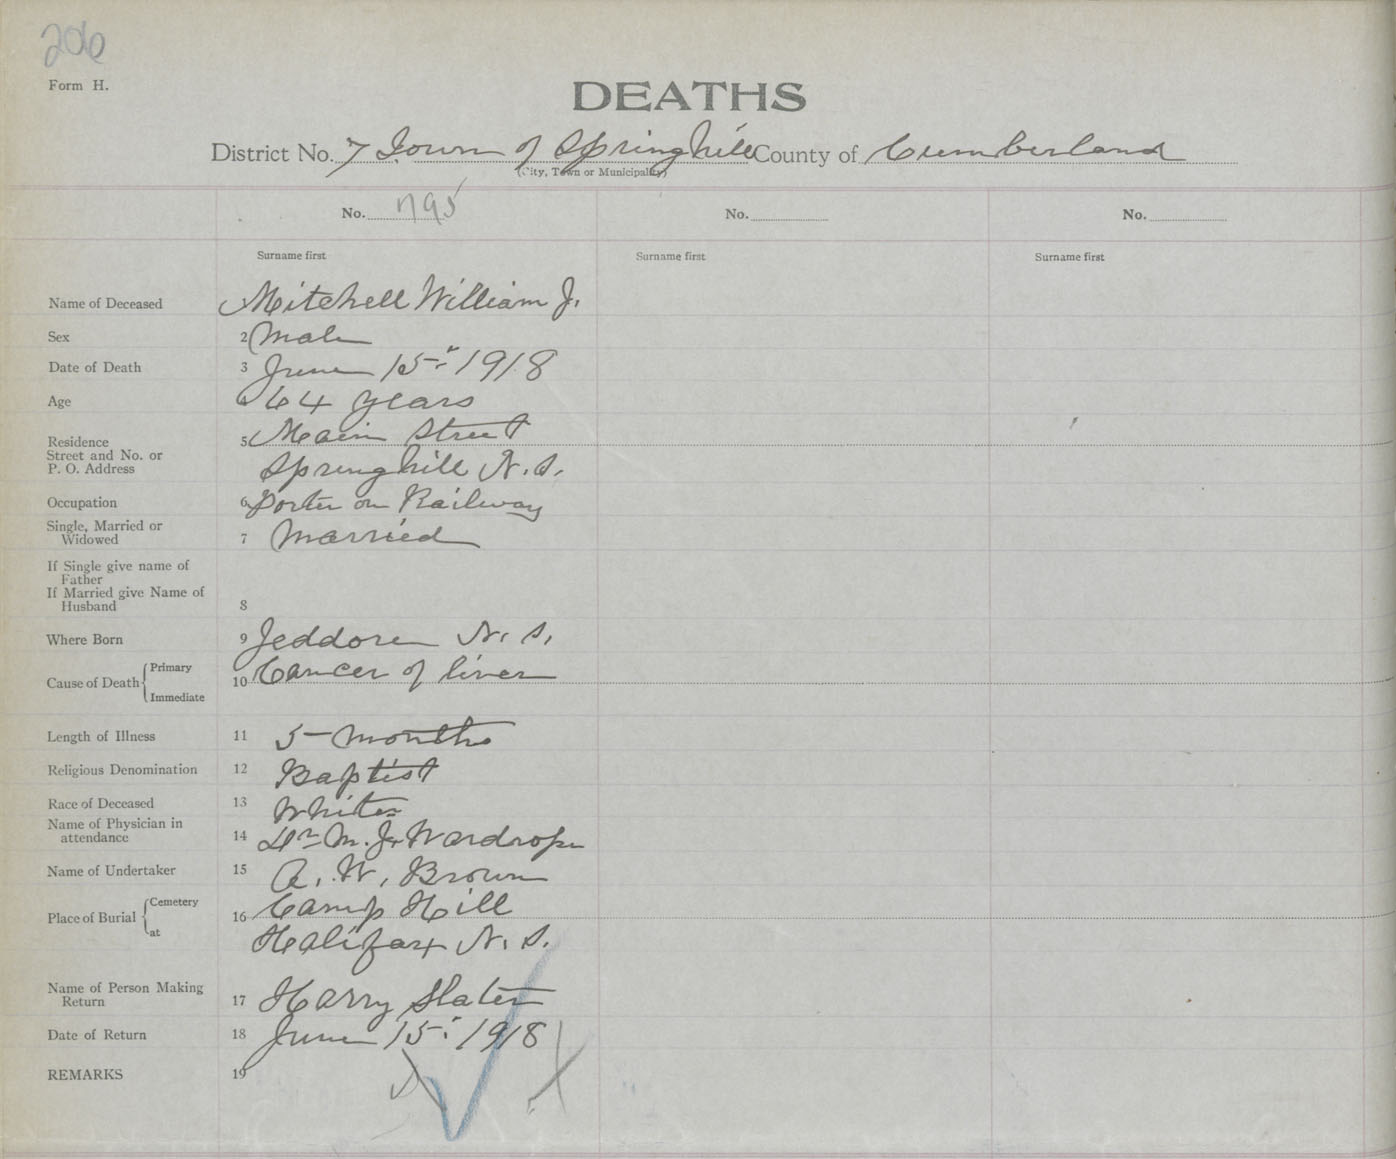 206
Form H.
DEATHS
District No. 7 Town of Springhill County of Cumberland
(City, Town or Municipality)
No. 795 No. No.
Surname first Surname first Surname first
Name of Deceased Mitchell William J.
Sex 2 Male
Date of Death 3 June 15" 1918
Age 4 64 years
Residence 5 Main Street
Street and No. or
P. O. Address Springhill N.S.
Occupation 6 Porter on Railway
Single, Married or
Widowed 7 Married
If Single give name of
Father
If Married give Name of
Husband 8
Where Born 9 Jeddore N.S.
Cause of Death { Primary
10 Cancer of liver
Immediate
Length of Illness 11 5 months
Religious Denomination 12 Baptist
Race of Deceased 13 White
Name of Physician in
attendance 14 Dr M. J. Wardrope
Name of Undertaker 15 A. W. Brown
Place of Burial { Cemetery
16 Camp Hill
at Halifax N.S.
Name of Person Making
Return 17 Harry Slater
Date of Return 18 June 15" 1918
REMARKS 19